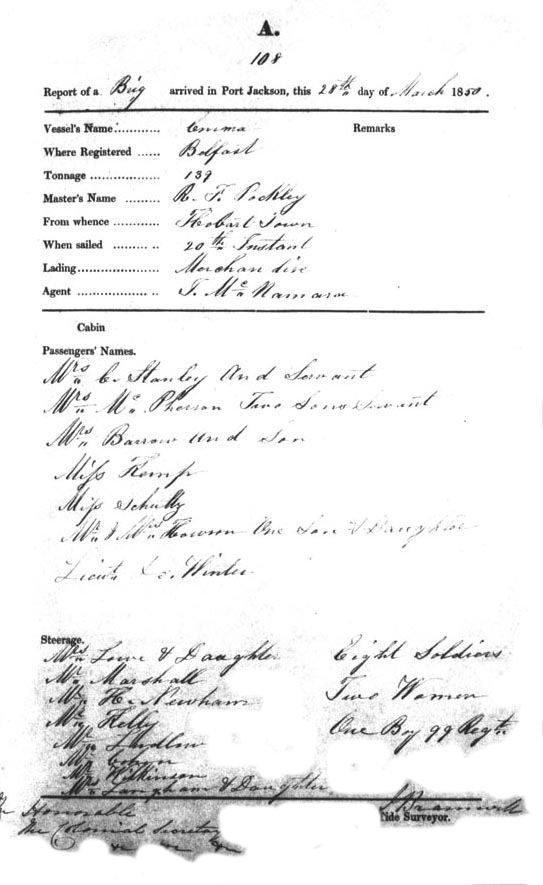 A.
108
Report of a Brig arrived in Port Jackson, this 28th day of March 1850.
Vessel's Name ............ Emma Remarks
Where Registered ...... Belfast
Tonnage ..................... 139
Master's Name ......... R. F. Pockley
From whence ............ Hobart Town
When sailed ......... .. 20th Instant
Lading ..................... Merchandise
Agent .................. .. T. McNamara
Cabin
Passengers' Names.
Mrs C. Stanley And Servant
Mrs McPherson Two Sons Servant
Mrs Barrow And Son
Miss Kemp
Miss Schultz
Mr & Mrs Howson One Son & Daughter
Lieut. Winter
Steerage.
Mrs Lowe & Daughter Eight Soldiers
Mr Marshall Two Women
Mr H. Newham One Boy 99 Regt.
Mr Kelly
Mr Ludlow
Mr
Mr Wilkinson
Mrs Langham & Daughter
Honorable
The Colonial Secretary
&c &c &c
Tide Surveyor.